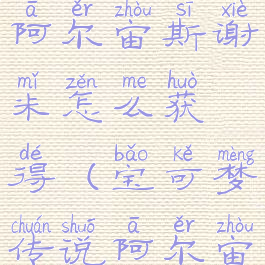 ā ěr zhòu sī xiè
阿尔宙斯谢
mǐ zěn me huò
米怎么获
dé bǎo kě mèng
得（宝可梦
chuán shuō ā ěr zhòu
传说阿尔宙